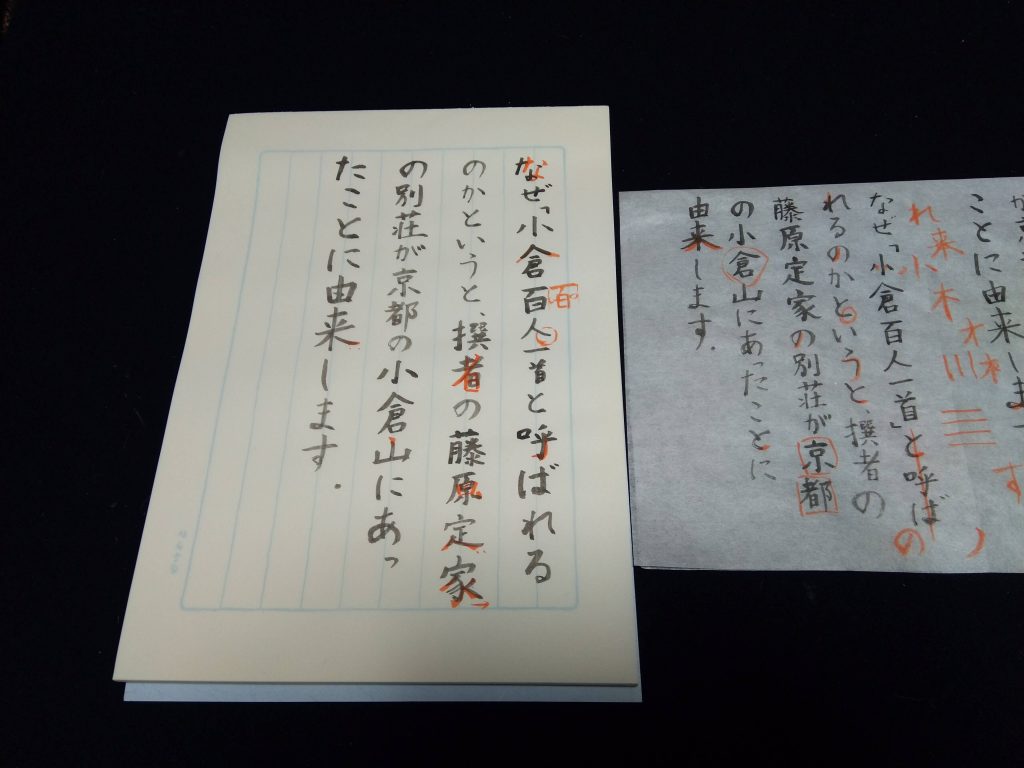 なぜ「小倉百人一首と呼ばれる
百
のかというと、撰者の藤原定家
の別荘が京都の小倉山にあっ
たことに由来します.
ことに由来しま
す
れ来
小木
の
なぜ「小倉百人一首」と呼ば
れるのかというと、撰者の
藤原定家の別荘が京都
の小倉山にあったことに
由来します.